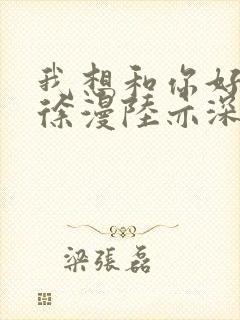 我想和你好
徐漫陸亦深
梁張磊